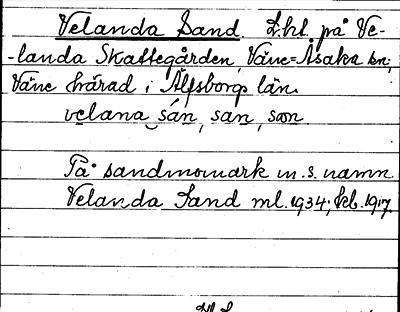 Velanda Sand. L.hl. på Ve-
-landa Skattegården, Väne=Åsaka sn;
Väne härad i Älfsborgs län.
velana sán, san, son.
På sandmomark m. s. namn
Velanda Sand ml. 1934; kb. 1917.